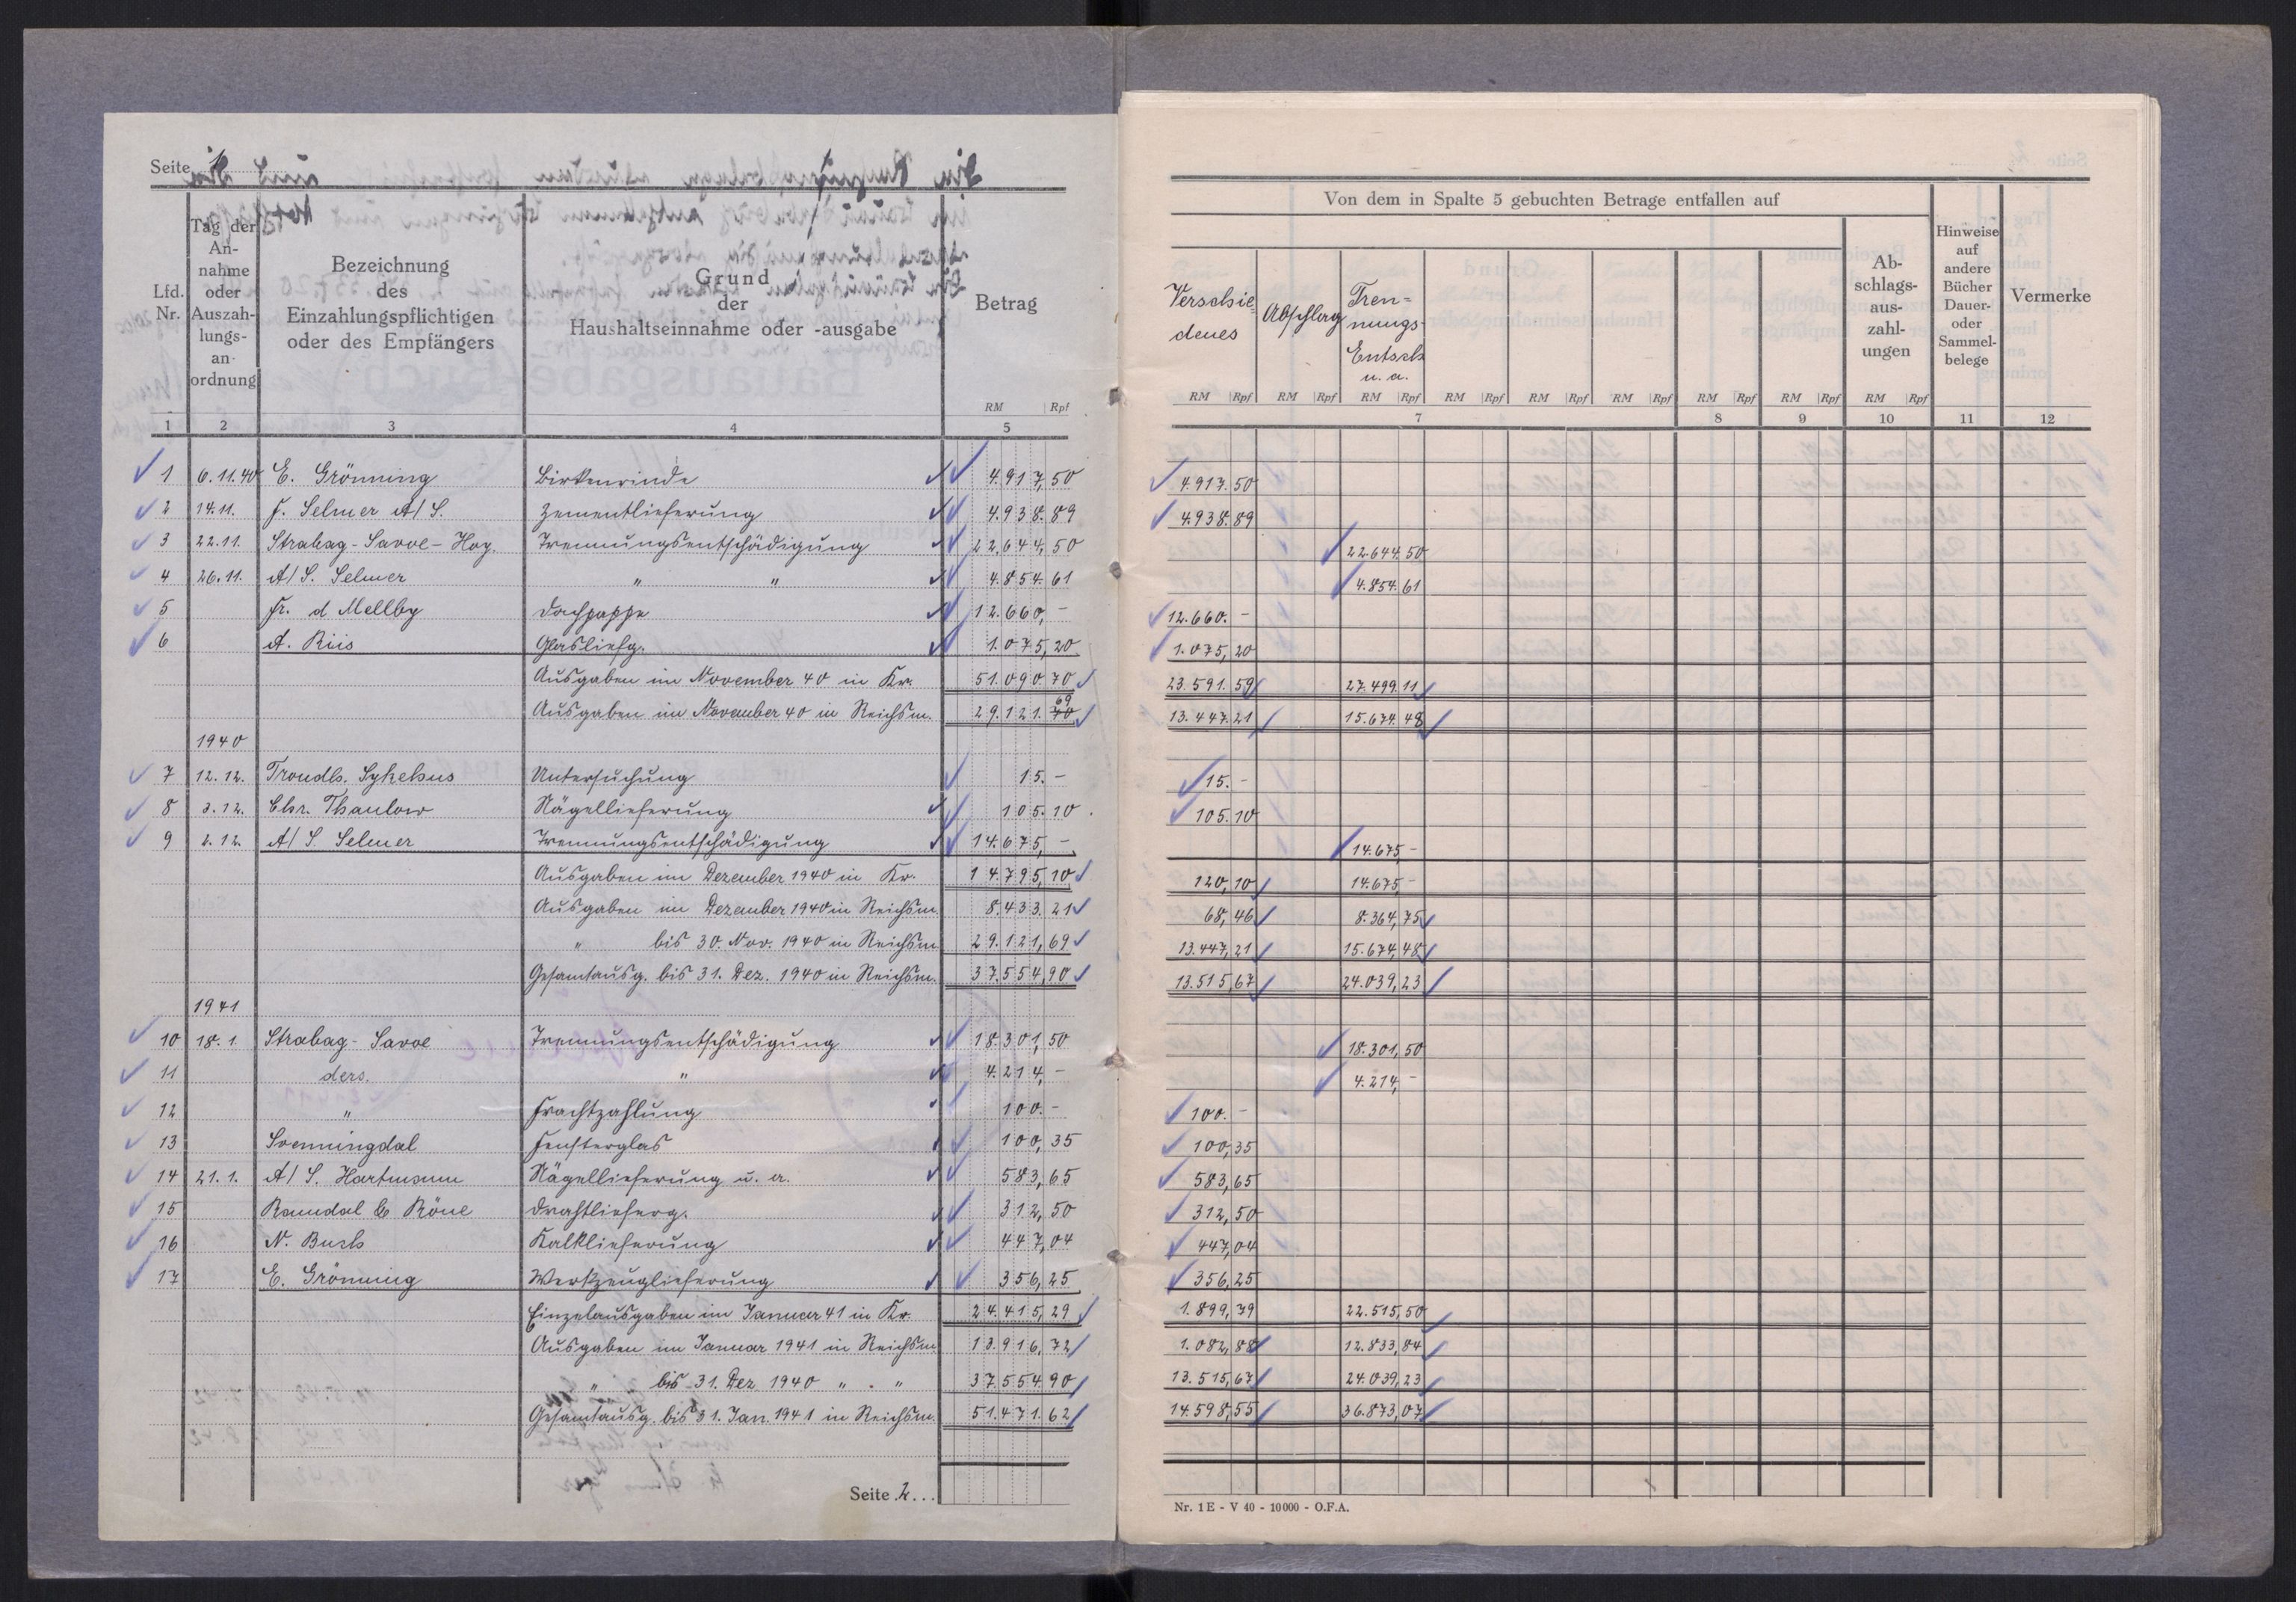 Seite 1
Lfd. Nr.
Tag der An- nahme oder Auszah- lungs- an- ordnung
Bezeichnung des Einzahlungspflichtigen oder des Empfängers
Grund der Haushaltseinnahme oder -ausgabe
Betrag
RM Rpf
1 2 3 4 5
1 6.11.40 E. Grönning Birkenrinde 4.917,50
2 14.11. F. Selmer A/S. Zementlieferung 4.938.89
3 22.11. Strabag-Savoe-Hoy. Trennungsentschädigung 22.644,50
4 26.11. A/S. Selmer " " 4.854.61
5 Fr. d Mellby Dachpappe 12.660,-
6 A. Riis Glasliefg. 1.075,20
Ausgaben im November 40 in Kr. 51.090 70
Ausgaben im November 40 in Reichsm. 29.121.69
1940
7 12.12. Trondh. Sykehus Untersuchung 15.-
8 3.12. Chr. Thaulow Nägellieferung 105.10
9 2.12. A/S. Selmer Trennungsentschädigung 14.675,-
Ausgaben im Dezember 1940 in Kr. 14.795,10
Ausgaben im Dezember 1940 in Reichsm. 8.433.21
" bis 30. Nov. 1940 in Reichsm. 29.121,69
Gesamtausg. bis 31. Dez. 1940 in Reichsm. 37.554,90
1941
10 18.1. Strabag-Savoe Trennungsentschädigung 18.301,50
11 ders. " 4.214,-
12 " Frachtzahlung 100.-
13 Svenningdal Fensterglas 100,35
14 21.1. A/S. Hartmann Nägellieferung u. a. 583,65
15 Ramdal & Röne Drahtlieferg. 312,50
16 N. Buch Kalklieferung 447,04
17 E. Grönning Werkzeuglieferung 356,25
Einzelausgaben im Januar 41 in Kr. 24.415,29
Ausgaben im Januar 1941 in Reichsm. 13.916,72
" bis 31. Dez 1940 " . " 37.554 90
Gesamtausg. bis 31. Jan. 1941 in Reichsm. 51.471.62
Seite 2...
Von dem in Spalte 5 gebuchten Betrage entfallen auf
Verschie- denes
Abschlag
Tren= nungs- Entsch u. a.
Ab- schlags- aus- zahl- ungen
Hinweise auf andere Bücher Dauer- oder Sammel- belege
Vermerke
RM Rpf RM Rpf RM Rpf RM Rpf RM Rpf RM Rpf RM Rpf RM Rpf RM Rpf
7 8 9 10 11 12
4.917.50
4.938.89
22.644.50
4.854.61
12.660.-
1.075,20
23.591.59 27.499.11
13.447.21 15.674.48
15.-
105.10
14.675,-
120,10 14.675,-
68,46 8.364,75
13.447,21 15.674,48
13.515,67 24.039,23
18.301,50
4.214,-
100.-
100,35
583,65
312,50
447,04
356,25
1.899,79 22.515,50
1.082,88 12.833,84
13.515,67 24.039,23
14.598,55 36.873,07
Nr. 1 E - V 40 - 10000 - O.F.A.